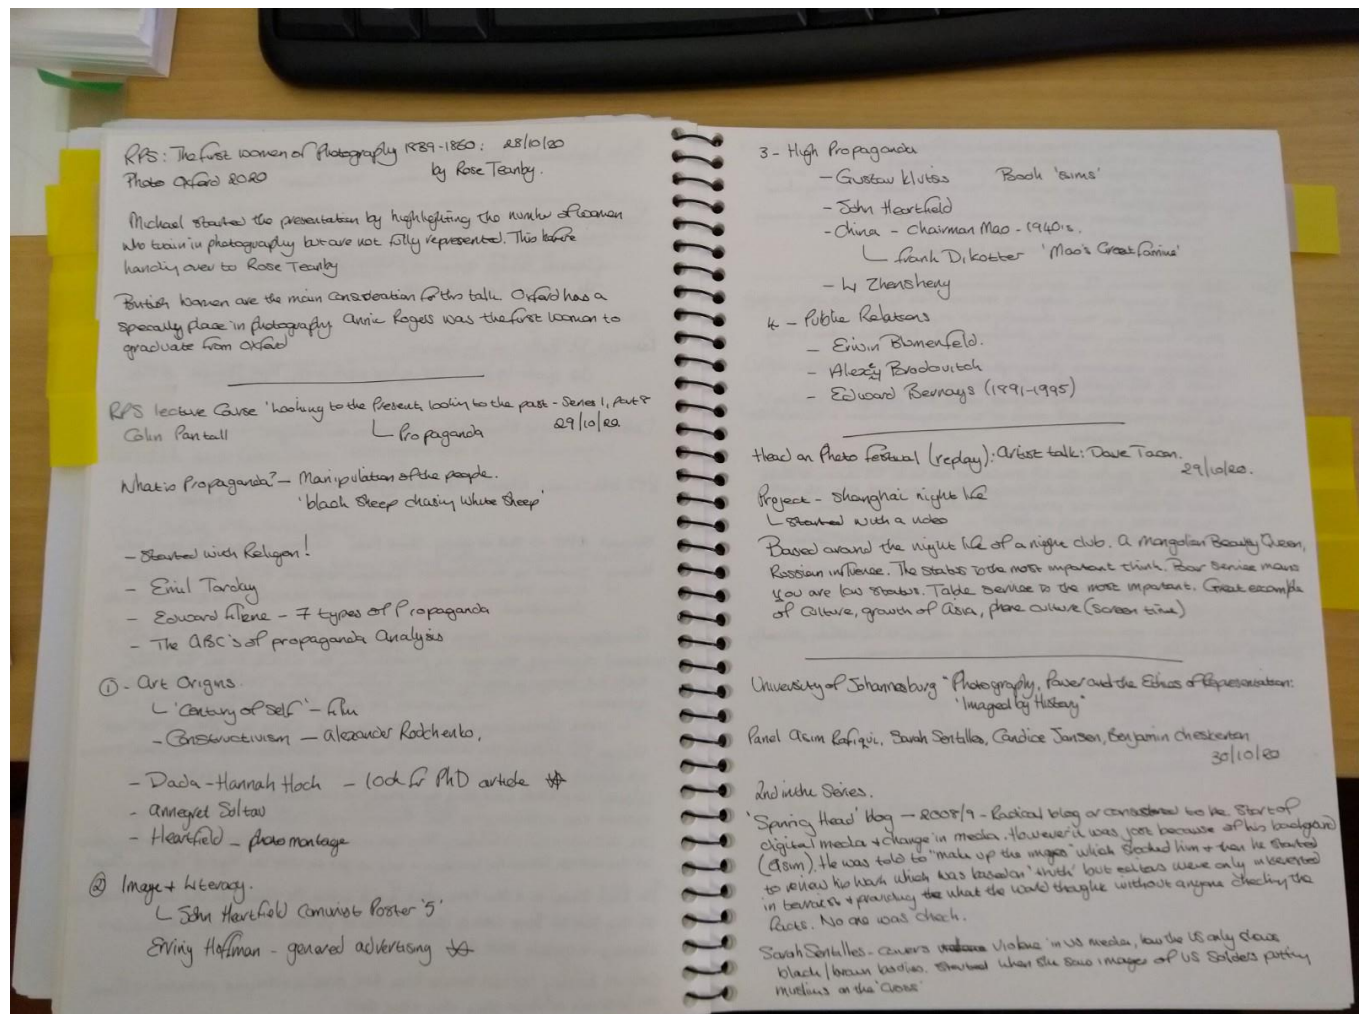 RPS: The first women of Photography 1839-1860: 28/10/20
Photo Oxford 2020 by Rose Teanby.
Michael started the presentation by highlighting the number of women
who train in photography but are not fully represented. This before
handing over to Rose Teanby
British women are the main consideration for this talk. Oxford has a
specially place in photography. Annie Rogers was the first woman to
graduate from Oxford
RPS lecture Course 'Looking to the Present, looking to the past - Series 1, part 8
Colin Pantall Propaganda 29/10/20
What is Propaganda? - Manipulation of the people.
'black sheep chasing white sheep'
- Started with Religion!
- Emil
- Edward Filene - 7 types of Propaganda
- The ABC's of propaganda Analysis
① - Art Origins.
'Century of Self' - film
- Constructivism - Alexander Rodchenko,
- Dada - Hannah Hoch - look for PhD article
- Annegret Soltau
- Heartfield - photomontage
② Image + Literacy.
John Heartfield Poster '5'
Erving Hoffman - advertising
3 - High Propaganda
- Gustav Klutsis Book
- John Heartfield
- China - Chairman Mao - 1940's.
Frank Dikotter 'Mao's Great famine'
- Li Zhensheng
4 - Public Relations
- Erwin Blumenfeld.
- Alexey Brodovitch
- Edward Bernays (1891-1995)
Head on Photo Festival (replay): Artist talk: Dave Tacon.
29/10/20.
Project - Shanghai night life
Started with a video
Based around the night life of a night club. A Mongolian Beauty Queen,
Russian influence. The status is the most important think. Bar service means
you are low status. Table service is the most important. Great example
of culture, growth of Asia, phone culture (screen time)
University of Johannesburg "Photography, Power and the Ethics of Representation:
'Imaged by History"
Panel Asim Rafiqui, Sarah Sentilles, Candice Jansen, Benjamin Chesterton
30/10/20
2nd in the Series.
'Spinning Head' blog - 2008/9 - Radical blog or considered to be start of
digital media + change in media. However it was just because of his background
(Asim). He was told to "make up the images" which shocked him + then he started
to review his work which was based on 'truth' but editors were only interested
in + providing what the world thought without anyone checking the
facts. No one was check.
Sarah Sentilles - covers violence in US media, how the US only shows
black/brown bodies. Started when she saw images of US Solders putting
muslims on the 'cross'